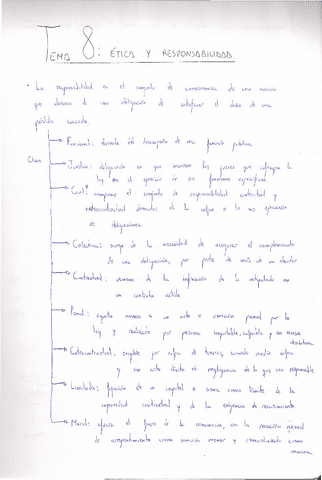 TEMA 8: ÉTICA Y RESPONSABILIDAD
• La responsabilidad es el conjunto de consecuencias de una acción
que derivan de una obligación de satisfacer el daño de una
pérdida causada.
Clases
→ Funcional: derivada del desempeño de una función pública.
→ Jurídica: obligación en que incurren los jueces que infringen la
ley en el ejercicio de sus funciones específicas.
→ Civil: comprende el conjunto de responsabilidad contractual y
extracontractual derivadas de la culpa o la no ejecución
de obligaciones.
→ Colectiva: surge de la necesidad de asegurar el cumplimiento
de una obligación, por parte de más de un deudor
→ Contractual: de la infracción de lo estipulado
un contrato válido.
→ Penal: aquella a un acto u omisión penal por la
ley y realizado por persona imputable, culpable y
→ Extracontractual: exigible por culpa de terceros, cuando media culpa
y un acto ilícito o negligencia de la que sea responsable.
→ Limitada: fijación de un capital o como límite de la
capacidad contractual y de la exigencia de resarcimiento.
→ Moral: el fuero de la conciencia, con la
de arrepentimiento como sanción menor y como